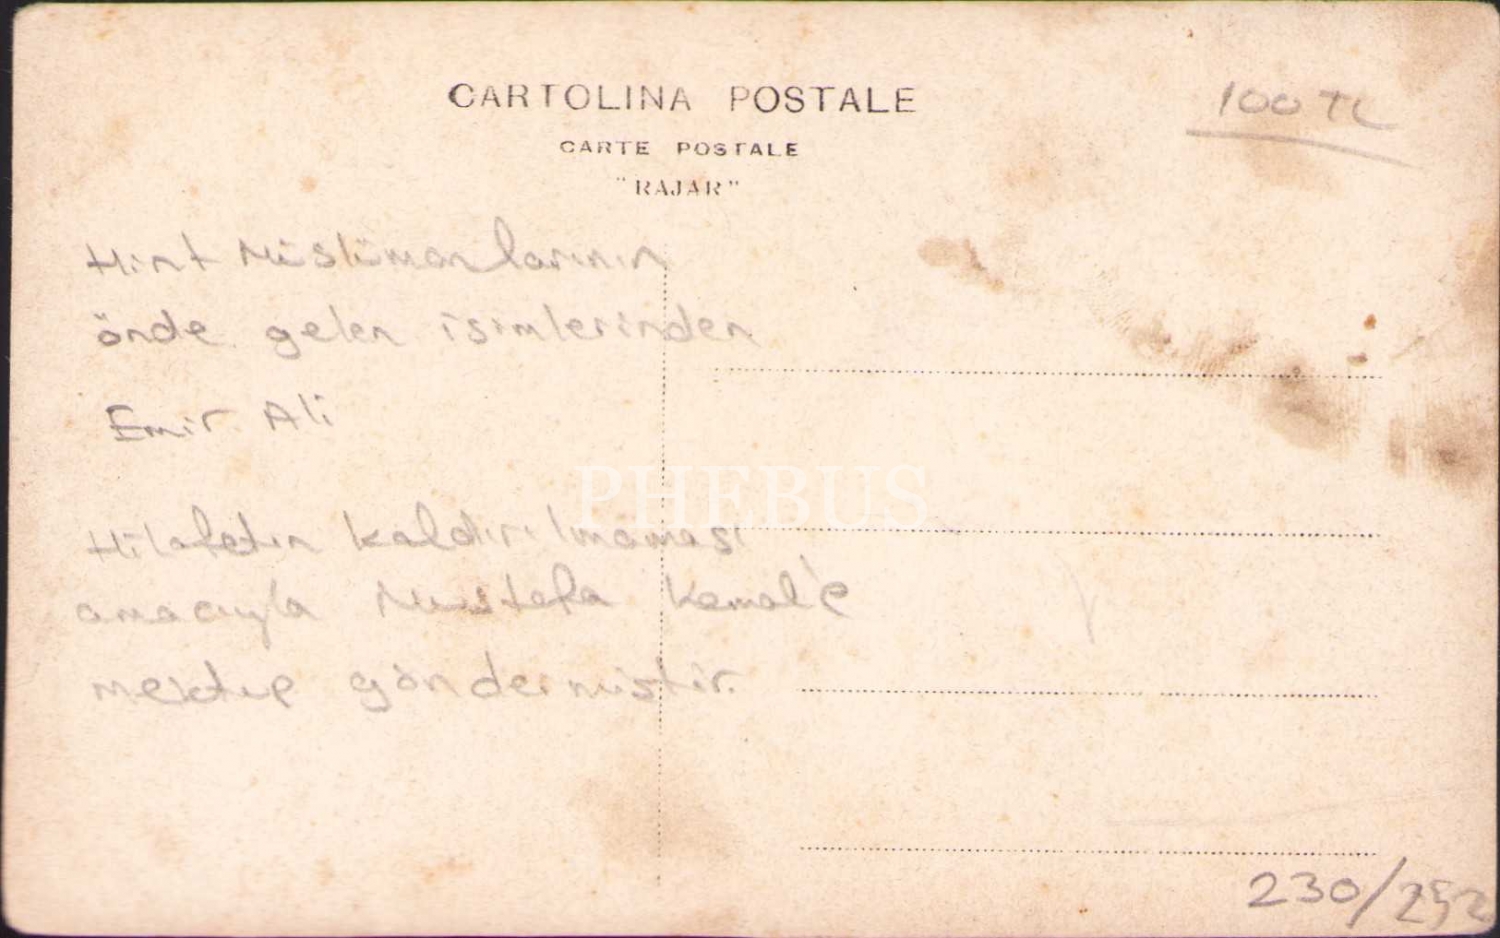 CARTOLINA POSTALE
CARTE POSTALE
"RAJAR"
100 TL
Hint Müslümanlarının
önde gelen isimlerinden
Emir Ali
Hilafetin kaldırılmaması
amacıyla Mustafa Kemal'e
mektup göndermiştir.
PHEBUS
230/252